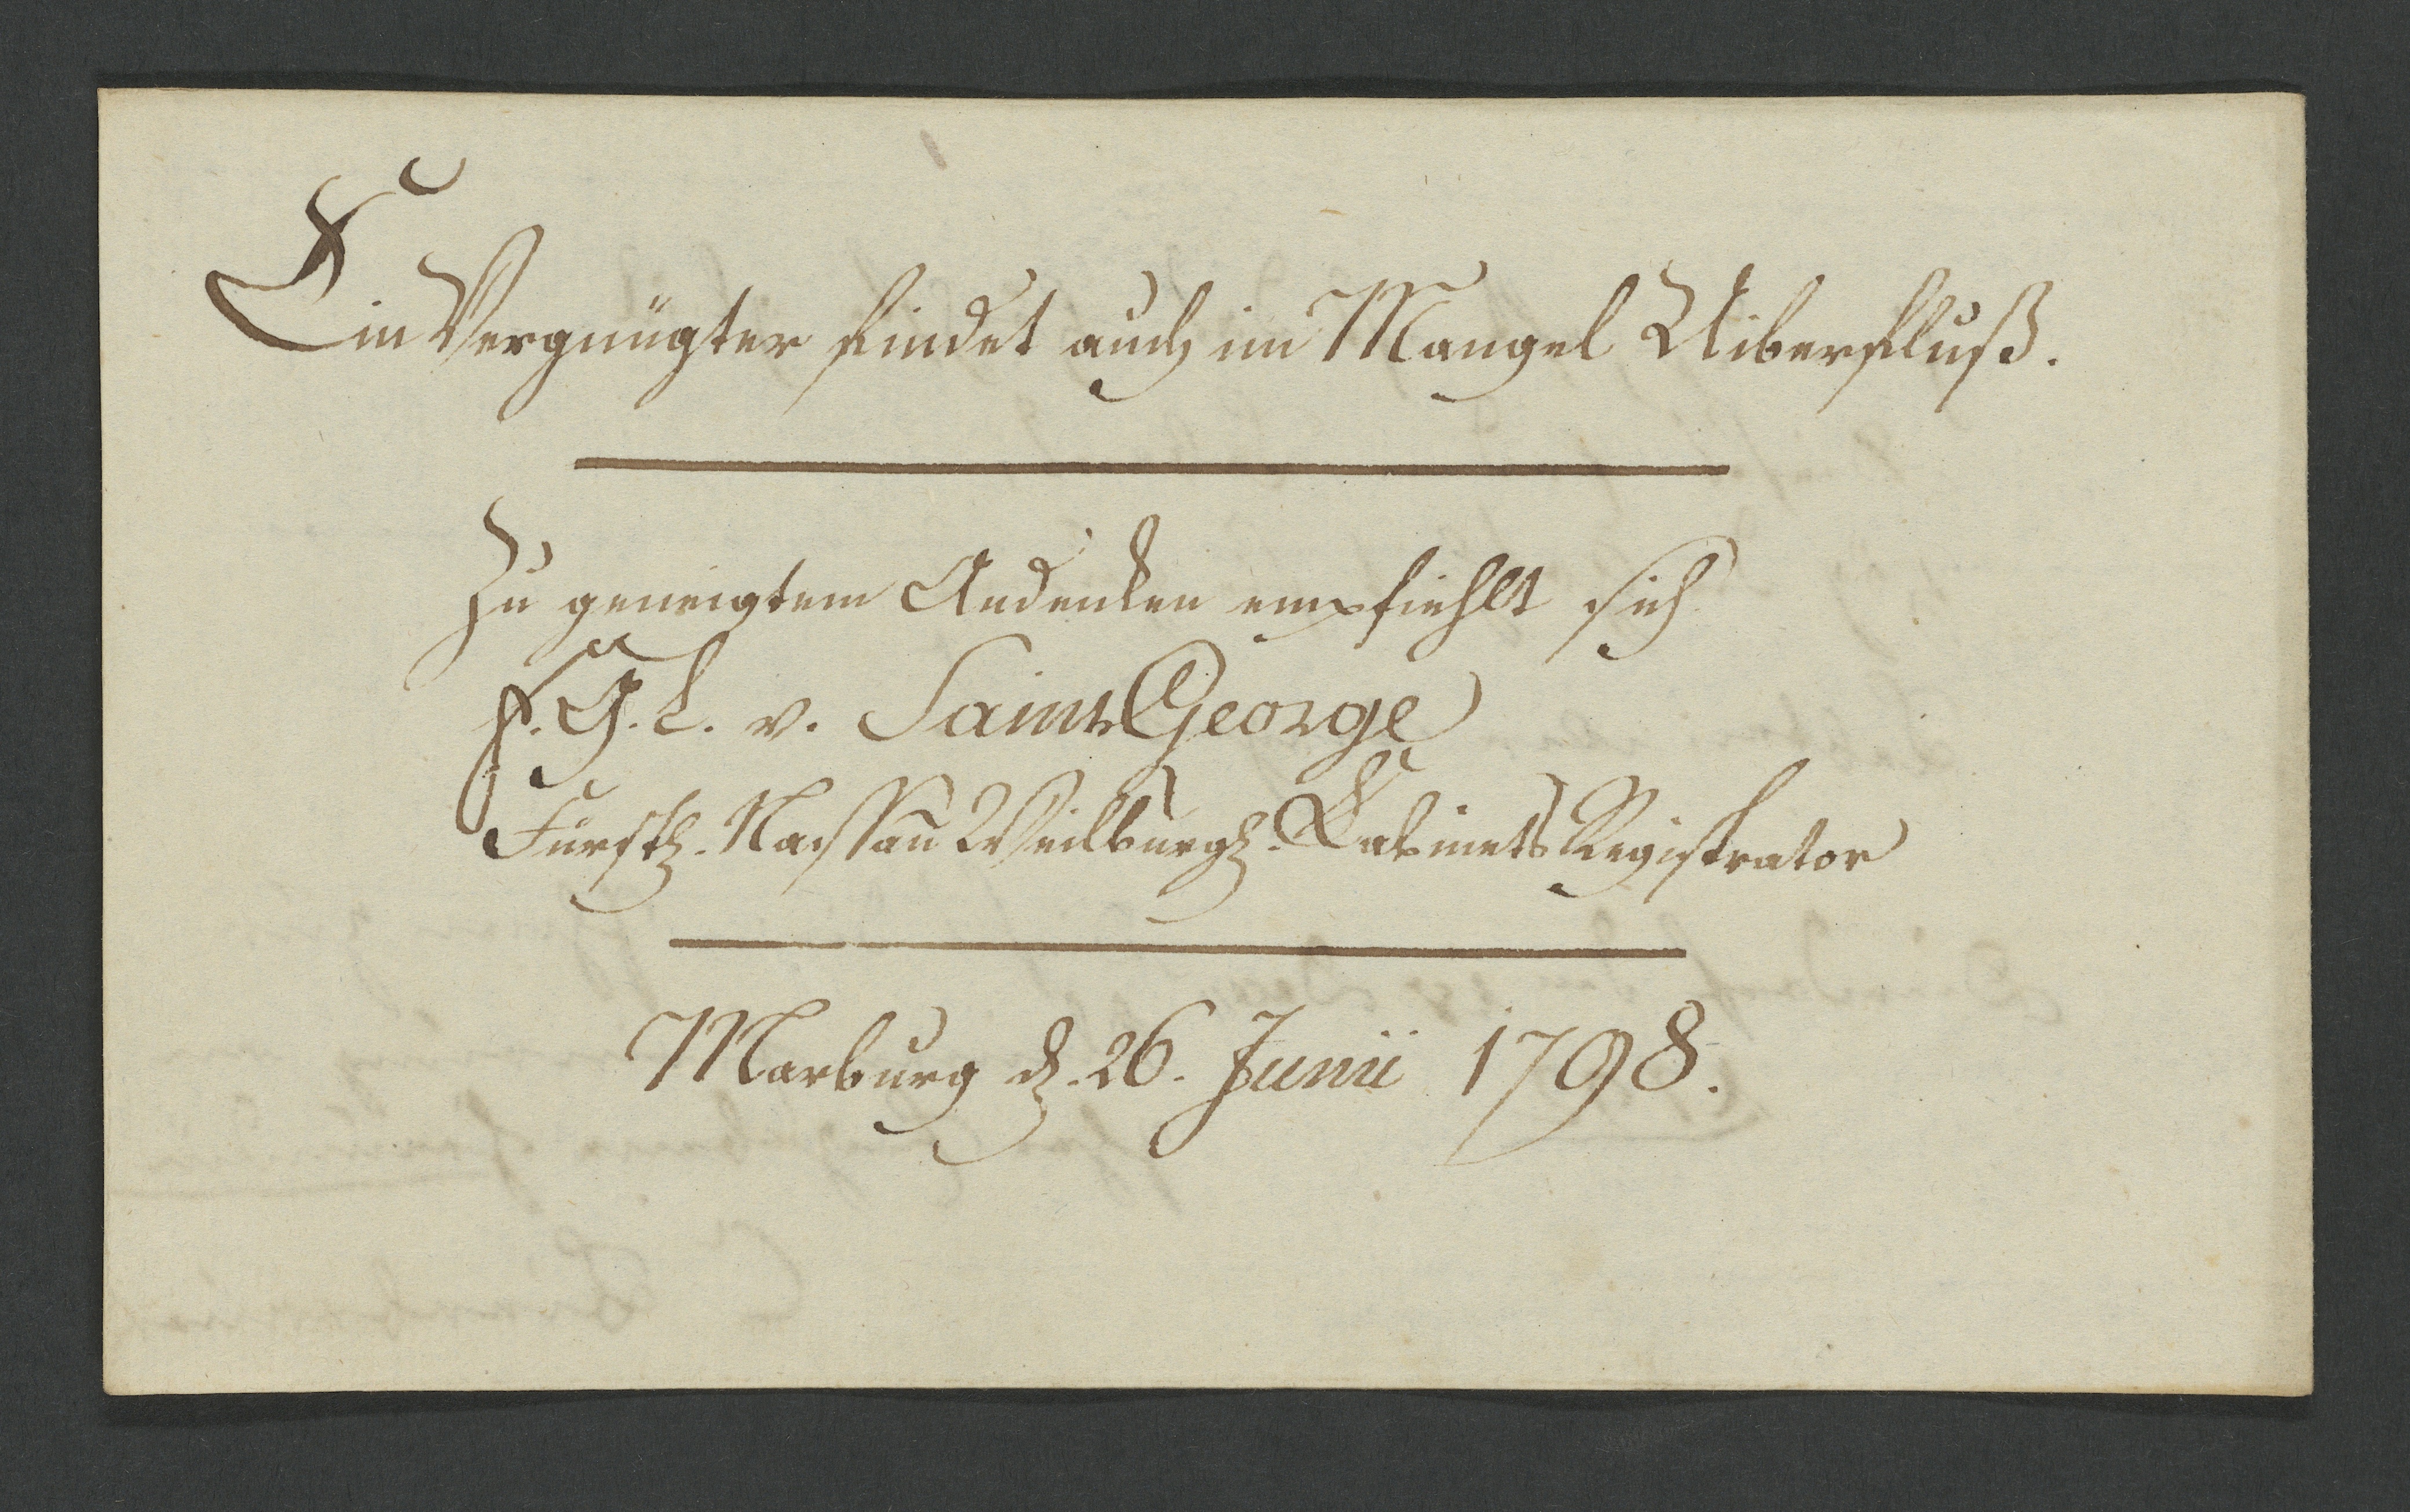 Ein Vergnügter findet auch im Mangel Uiberfluß.
Zu geneigtem Andenken empfiehlt sich
F. G. L. v. Saint George
Fürstl. Nassau Weilburgl. Kabinets Registrator
Marburg d. 26. Junii 1798.